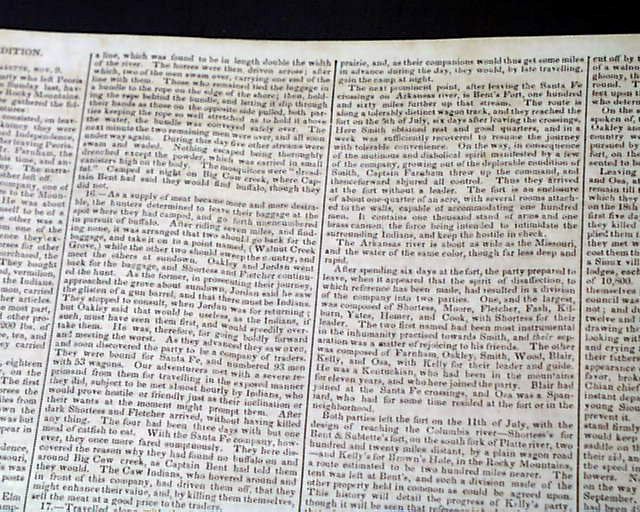 EDITION.
a line, which was found to be in length double the width
of the river. The horses were then driven across; after
which, two of the men swam over, carrying one end of the
line with them. Those who remained tied the luggage in
a bundle to the rope on the edge of the shore; then, hold-
ing the rope behind the bundle, and letting it slip through
their hands as those on the opposite side pulled, both par-
ties keeping the rope so well stretched as to hold it above
the water, the bundle was conveyed safely over. The
next minute the two remaining men were over, and all soon
under way again. During this day five other streams were
swam and waded. Nothing escaped being thoroughly
drenched except the powder, which was carried in small
canisters high on the body. The mosquitoes were "dread-
ful." Camped at night on Big Cow creek, where Cap-
tain Bent had said they would find buffalo, though they
did not.
16.—As a supply of meat became more and more desira-
ble, the hunters determined to leave their baggage at the
spot where they had camped, and go forth unencumbered
in pursuit of buffalo. After riding seven miles, and find-
ing none, it was arranged that two should go back for the
baggage, and take it on to a point named, (Walnut Creek
Grove,) while the other two should sweep the country, and
meet the others at sundown. Oakley and Jordan went
back for the baggage, and Shortess and Fletcher continu-
ed the hunt. As the former, in prosecuting their journey,
approached the grove about sundown, Jordan said he saw
the glisten of a gun barrel, and that there must be Indians.
They stopped to consult, when Jordan was for returning;
but Oakley said that would be useless, as the Indians, if
such, must have seen them first, and would speedily over-
take them. He was, therefore, for going boldly forward
and meeting the worst. As they advanced they saw men,
and soon discovered the party to be a company of traders.
They were bound for Santa Fe, and numbered 93 men
with 53 wagons. Our adventurers met with a severe re-
primand from them for travelling in the exposed manner
they did, subject to be met almost hourly by Indians, who
would prove hostile or friendly just as their inclination or
their wants at the moment might prompt them. After
dark Shortess and Fletcher arrived, without having killed
any thing. The four had been three days with but one
meal of catfish to eat. With the Santa Fe company, how-
ever, they once more fared sumptuously. They here dis-
covered the reason why they had found no buffalo on and
around Big Cow creek, as Captain Bent had told them
they would. The Caw Indians, who hovered around and
in front of this company, had driven them off, that they
might enhance their value, and, by killing them themselves,
sell the meat at a good price to the traders.
17.—Travelled along
prairie, and, as their companions would thus get some miles
in advance during the day, they would, by late travelling,
gain the camp at night.
The next prominent point, after leaving the Santa Fe
crossings on Arkansas river, is Bent's Fort, one hundred
and sixty miles further up that stream. The route is
along a tolerably distinct wagon track, and they reached the
fort on the 5th of July, six days after leaving the crossings.
Here Smith obtained rest and good quarters, and in a
week was sufficiently recovered to resume the journey
with tolerable convenience. On the way, in consequence
of the mutinous and diabolical spirit manifested by a few
of the company, growing out of the deplorable condition of
Smith, Captain Farnham threw up the command, and
thenceforward abjured all control. Thus they arrived
at the fort without a leader. The fort is an enclosure
of about one-quarter of an acre, with several rooms attach-
ed to the walls, capable of accommodating one hundred
men. It contains one thousand stand of arms and one
brass cannon, the force being intended to intimidate the
surrounding Indians, and keep the hostile in check.
The Arkansas river is about as wide as the Missouri,
and the water of the same color, though far less deep and
rapid.
After spending six days at the fort, the party prepared to
leave, when it appeared that the spirit of disaffection, to
which reference has been made, had resulted in a division
of the company into two parties. One, and the largest,
was composed of Shortess, Moore, Fletcher, Fash, Kil-
burn, Yates, Homer, and Cook, with Shortess for their
leader. The two first named had been most instrumental
in the inhumanity practised towards Smith, and their sep-
aration was a matter of rejoicing to his friends. The other
was composed of Farnham, Oakley, Smith, Wood, Blair,
Kelly, and Osa, with Kelly for their leader and guide.
He was a Kentuckian, who had been in the mountains
for eleven years, and who here joined the party. Blair had
joined at the Santa Fe crossings, and Osa was a Span-
iard, who had for some time resided at the fort or in the
neighborhood.
Both parties left the fort on the 11th of July, with the
design of reaching the Columbia river—Shortess's for
Bent & Sublette's fort, on the south fork of Platte river, two
hundred and twenty miles distant, by a plain wagon road
—and Kelly's for Brown's Hole, in the Rocky Mountains,
a route estimated to be two hundred miles nearer. The
tent was left at Bent's, and such a division made of the
other property held in common as could be agreed upon.
This history will detail the progress of Kelly's party,
though it will be seen that